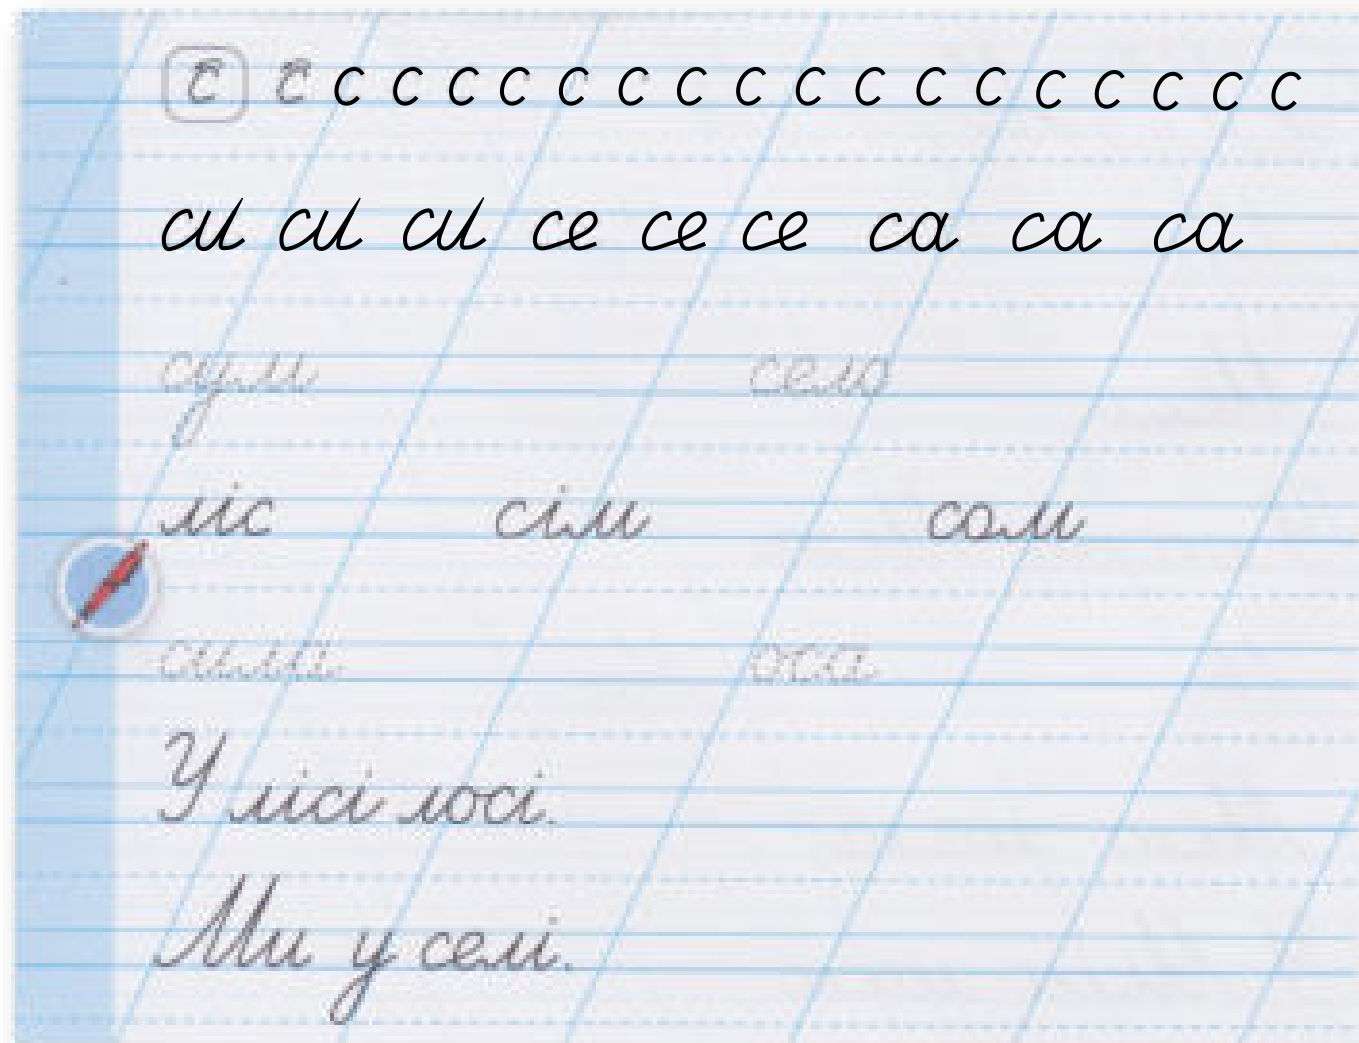 с с с с с с с с с с с с с с с с с с с
си си си се се се са са са
сум село
ліс сім сом
оса
У лісі лосі.
Ми у селі.